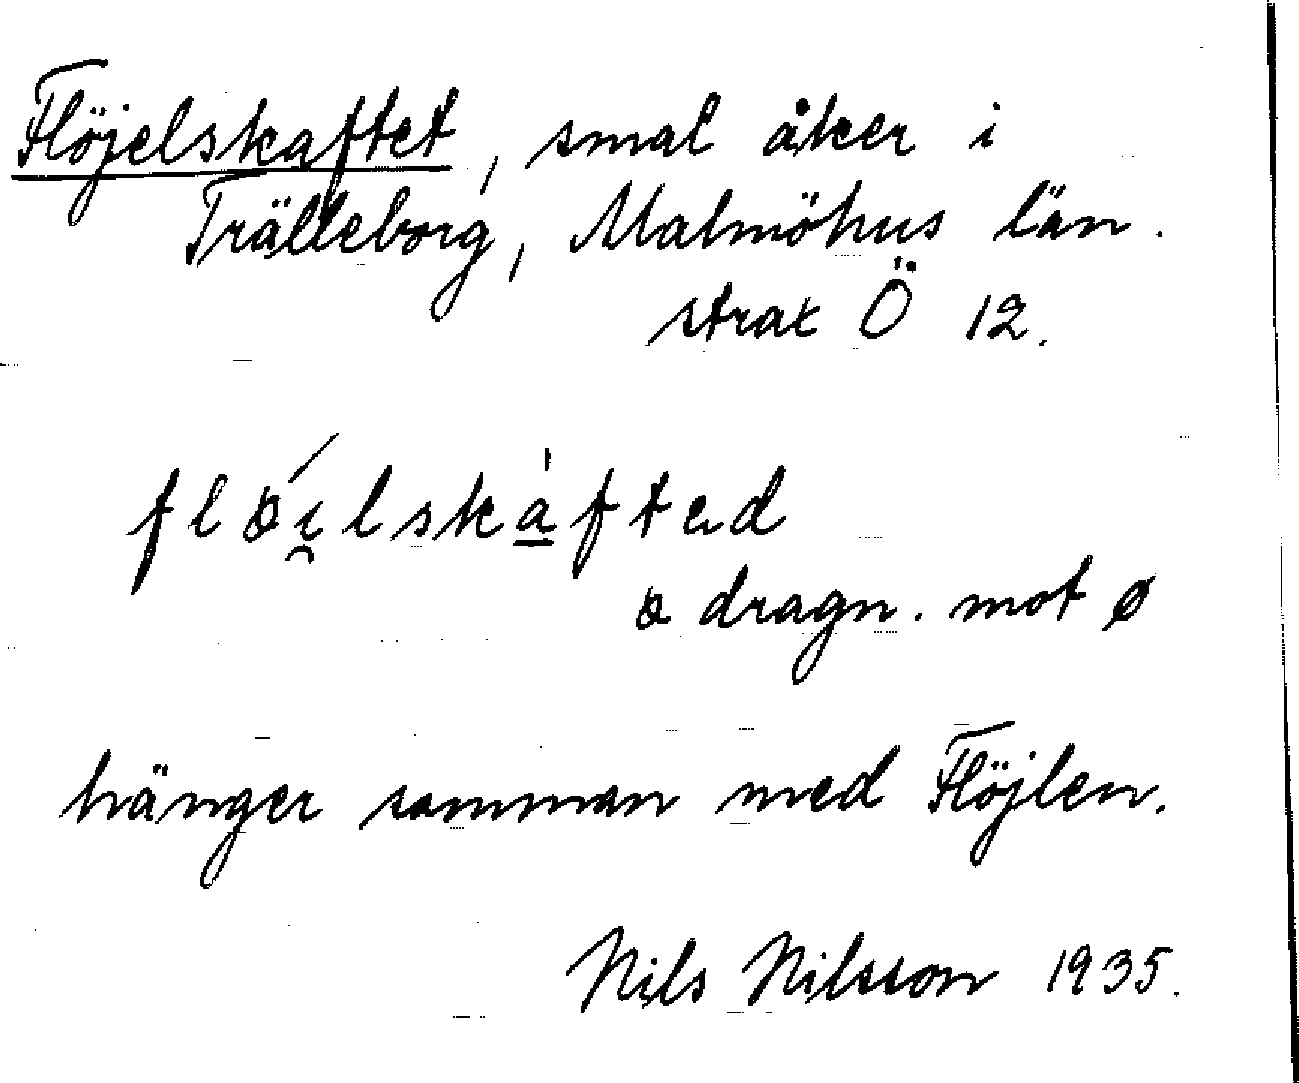 Flöjelskaftet, smal åker i
Trälleborg, Malmöhus län.
strax Ö 12.
dragn. mot ø
hänger samman med Flöjlen.
Nils Nilsson 1935.